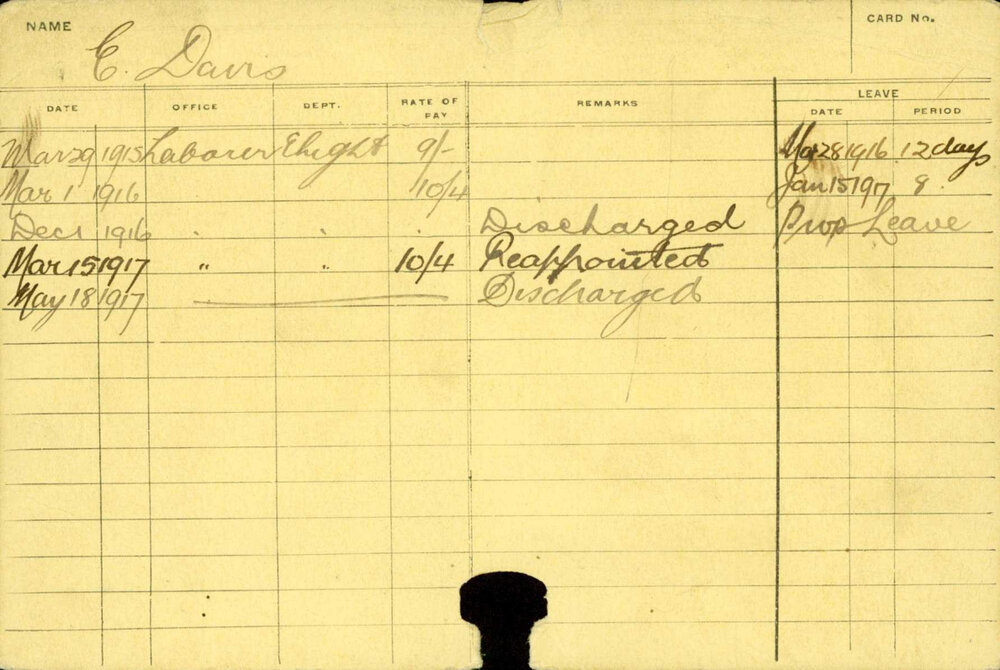 NAME
CARD No.
E. Davis
LEAVE
DATE OFFICE DEPT. RATE OF PAY REMARKS DATE PERIOD
Mar 29 1915 Laborer Elight 9/- Mar 28 1916 12 days
Mar 1 1916 10/4 Jan 15 1917 8
Dec 1 1916 " " " Discharged Prop Leave
Mar 15 1917 " " 10/4 Reappointed
May 18 1917 Discharged